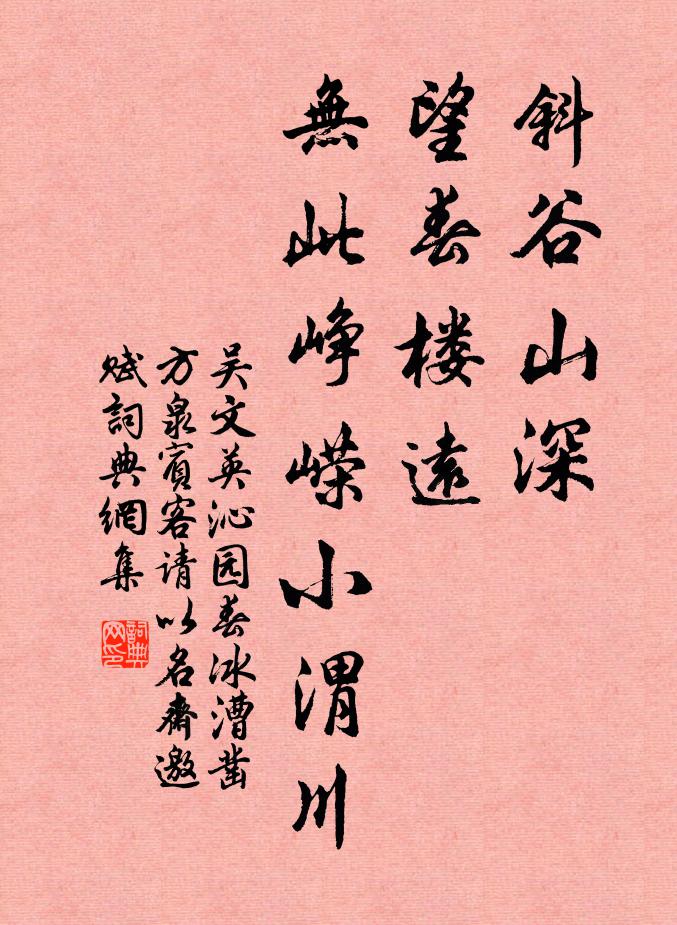 斜谷山深
望春楼遠
無此峥嶸小渭川
吴文英沁园春冰漕凿
方泉賓客请以名齋邀
赋詞典網集
詞典
网印